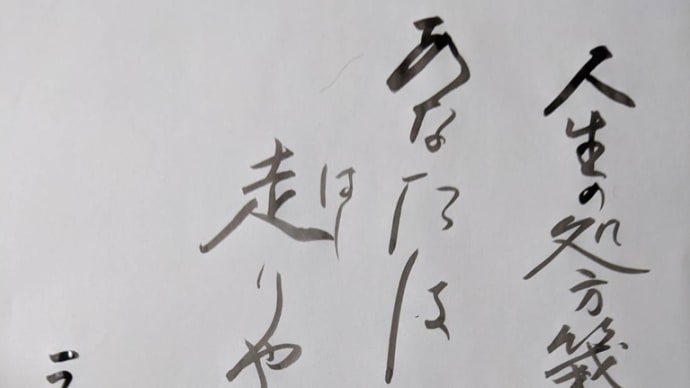 人生の処方箋
あなたは
はし
走りや